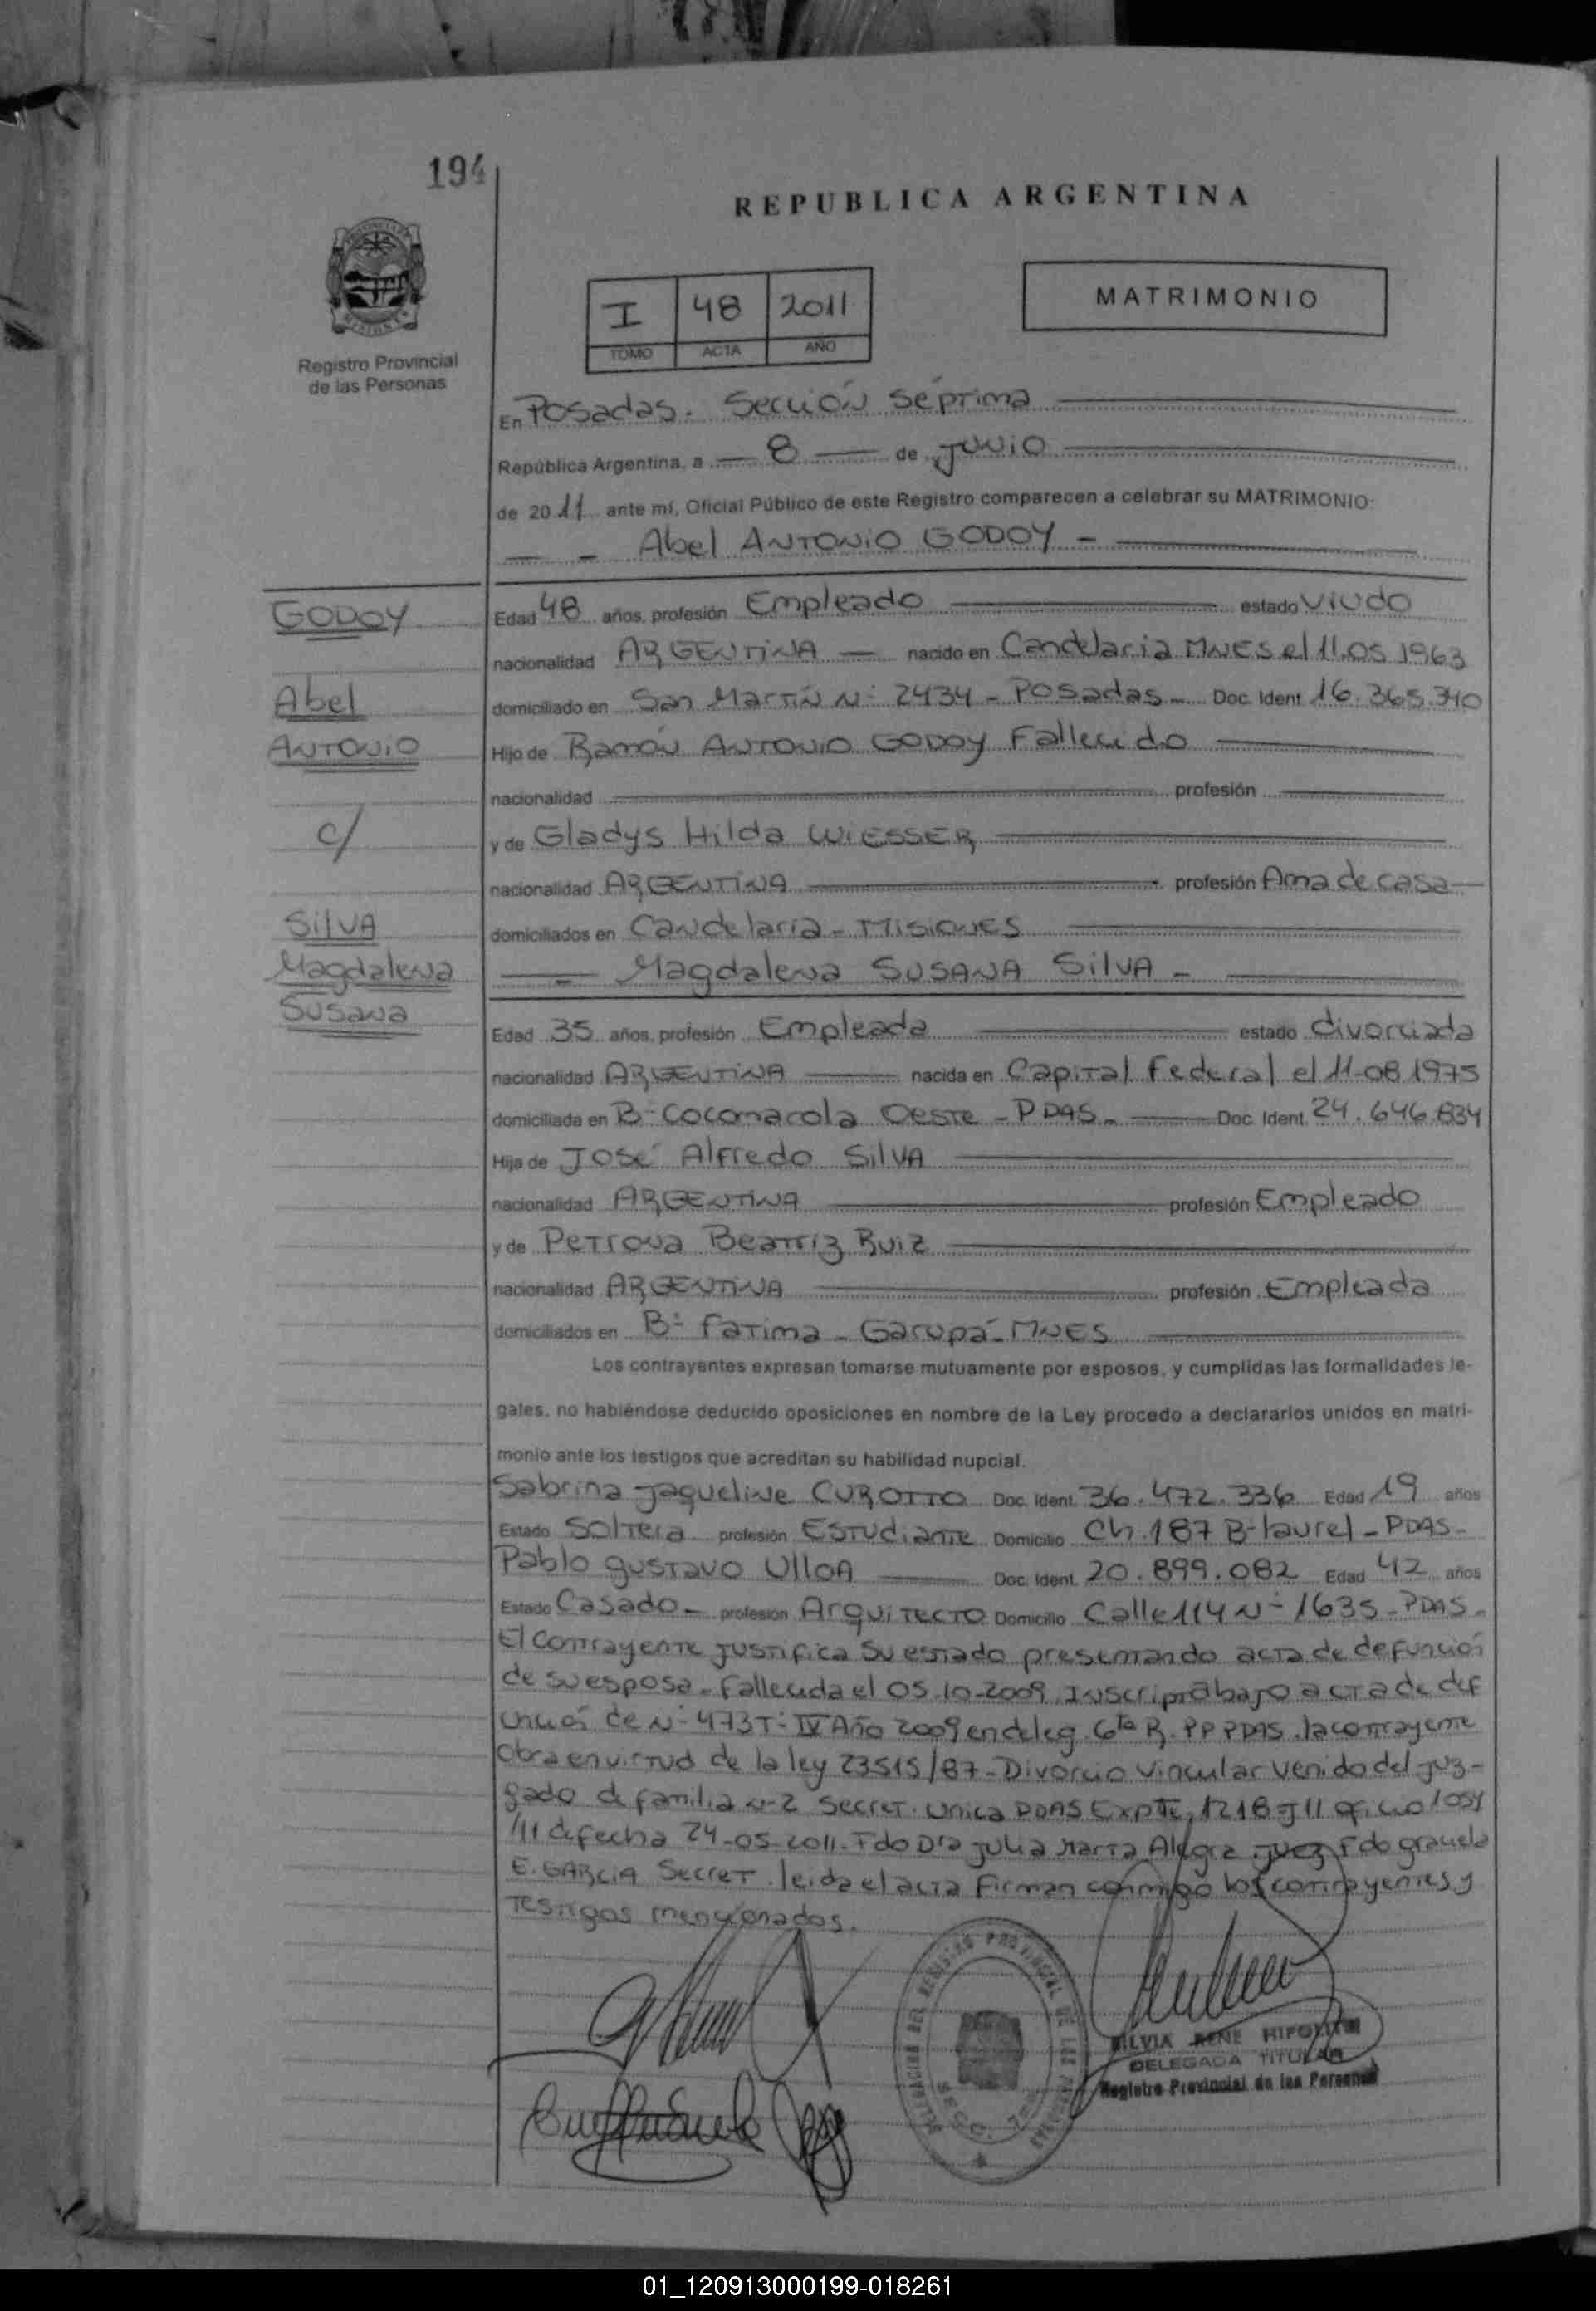 194
REPUBLICA ARGENTINA
I 48 2011
TOMO ACTA AÑO
MATRIMONIO
Registro Provincial
de las Personas
En Posadas. Sección Séptima
República Argentina, a 8 de Junio
de 2011 ante mí, Oficial Público de este Registro comparecen a celebrar su MATRIMONIO:
- Abel ANTONIO GODOY -
GODOY
Abel
ANTONIO
c/
SilVA
Magdalena
Susana
Edad 48 años, profesión Empleado estado Viudo
nacionalidad ARGENTINA nacido en Candelaria MNES el 11.05 1963
domiciliado en San Martín N: 2434 - Posadas - Doc. Ident. 16.365.340
Hijo de Ramón ANTONIO GODOY Fallecido
nacionalidad profesión
y de Gladys Hilda WIESSER
nacionalidad ARGENTINA profesión Ama de casa
domiciliados en Candelaria - Misiones
- Magdalena SUSANA SilVA -
Edad 35 años, profesión Empleada estado divorciada
nacionalidad ARGENTINA nacida en Capital Federal el 11-08 1975
domiciliada en B- Cocomarola Oeste - PDAS - Doc. Ident. 24.646.834
Hija de José Alfredo SilVA
nacionalidad ARGENTINA profesión Empleado
y de Petrona Beatriz Ruiz
nacionalidad ARGENTINA profesión Empleada
domiciliados en B: Fatima - Garupá - MNES
Los contrayentes expresan tomarse mutuamente por esposos, y cumplidas las formalidades le-
gales, no habiéndose deducido oposiciones en nombre de la Ley procedo a declararlos unidos en matri-
monio ante los testigos que acreditan su habilidad nupcial.
Sabrina Jaqueline CUROTTO Doc. Ident. 36.472.336 Edad 19 años
Estado Soltera profesión Estudiante Domicilio Ch. 187 B- laurel - PDAS -
Pablo gustavo UlloA Doc. Ident. 20.899.082 Edad 42 años
Estado Casado - profesión Arquitecto Domicilio Calle 114 N- 1635 - PDAS -
El contrayente justifica su estado presentando acta de defunción
de su esposa - fallecida el 05-10-2009. Inscripta bajo acta de def
unción de N- 473 T- IV Año 2009 en deleg. 6ta R.PP PDAS. la contrayente
Obra en virtud de la ley 23515/87 - Divorcio Vincular venido del juz-
gado de familia N-2 Secret. Unica PDAS Expte,
/11 de fecha 24-05-2011. Fdo Dra Julia Marta Alegre Juez Fdo graciela
E. GARCIA Secret. leida el acta firman conmigo los contrayentes y
Testigos mencionados.
DELEGACION DEL REGISTRO PROVINCIAL DE LAS PERSONAS
SECC. 7
SILVIA RENE HIPOLITO
DELEGADA TITULAR
Registro Provincial de las Personas
01_120913000199-018261